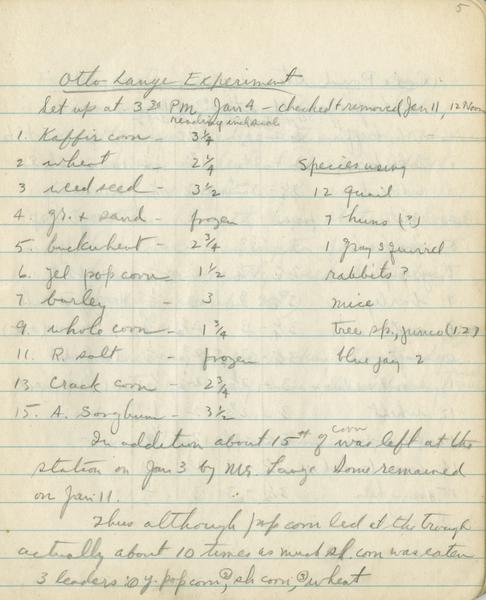 5
Otto Lange Experiment
Set up at 3 30 PM Jan 4 - checked & removed Jan 11, 12 Noon
reading in hand
1. Kaffir corn - 3 1/4
2 wheat - 2 1/4 Species using
3 weed seed - 3 1/2 12 quail
4. gr. & sand - frozen 7 huns (?)
5. buckwheat - 2 3/4 1 gray squirrel
6. yel pop corn - 1 1/2 rabbits ?
7. barley - 3 mice
9. whole corn - 1 3/4 tree sp., junco (1,2)
11. R. salt - frozen blue jay 2
13. Crack corn - 2 3/4
15. A. Sorghum - 3 1/2
In addition about 15# of corn was left at the
station on Jan 3 by Mr. Lange Some remained
on Jan 11.
Thus although pop corn led at the trough
actually about 10 times as much sh. corn was eaten
3 leaders: ① y. pop corn, ② sh corn, ③ wheat